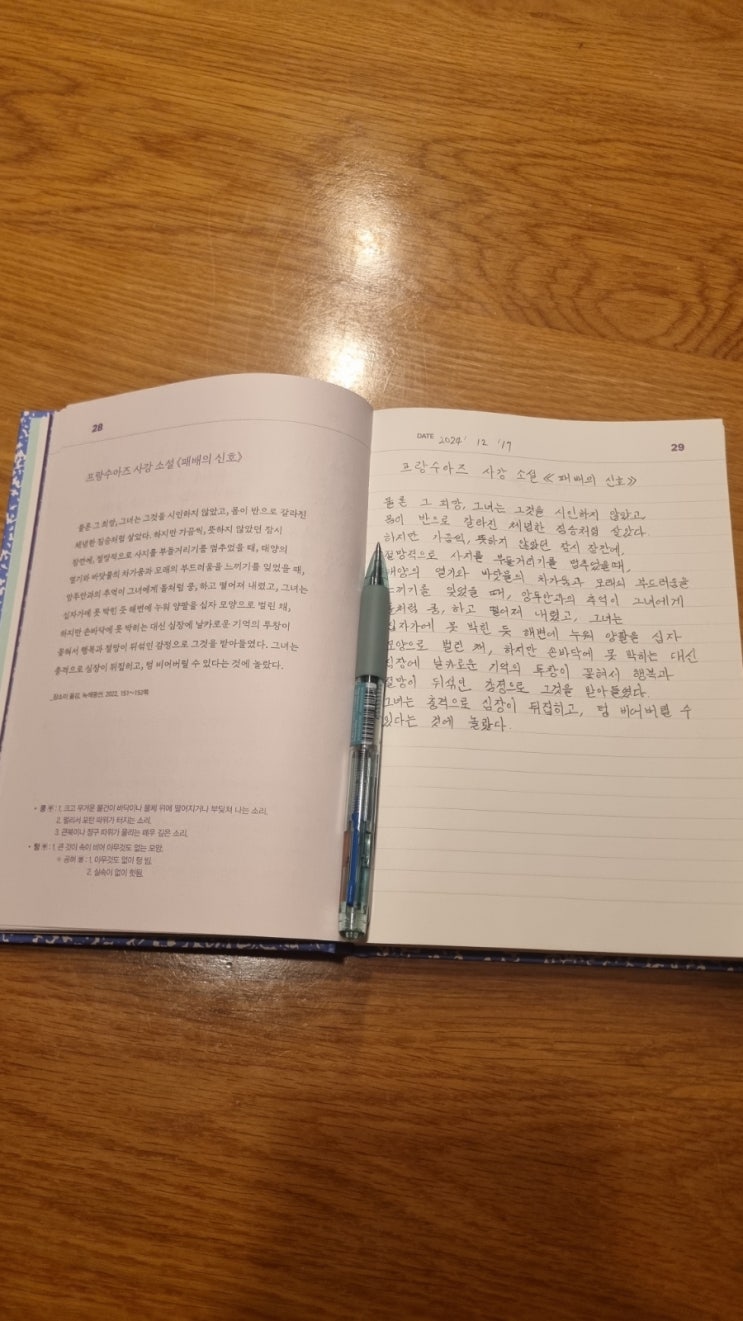 28
프랑수아즈 사강 소설 《패배의 신호》
물론 그 희망, 그녀는 그것을 시인하지 않았고, 몸이 반으로 갈라진
체념한 짐승처럼 살았다. 하지만 가끔씩, 뜻하지 않았던 잠시
잠깐에, 절망적으로 사지를 부둥거리기를 멈추었을 때, 태양의
열기와 바닷물의 차가움과 모래의 부드러움을 느끼기를 잊었을 때,
앙투안과의 추억이 그녀에게 돌처럼 쿵, 하고 떨어져 내렸고, 그녀는
십자가에 못 박힌 듯 해변에 누워 양팔을 십자 모양으로 벌린 채,
하지만 손바닥에 못 박히는 대신 심장에 날카로운 기억의 투창이
꽂혀서 행복과 절망이 뒤섞인 감정으로 그것을 받아들였다. 그녀는
충격으로 심장이 뒤집히고, 텅 비어버릴 수 있다는 것에 놀랐다.
_장소미 옮김, 녹색광선, 2022, 151~152쪽
• 쿵 부: 1. 크고 무거운 물건이 바닥이나 물체 위에 떨어지거나 부딪쳐 나는 소리.
2. 멀리서 포탄 따위가 터지는 소리.
3. 큰북이나 장구 따위가 울리는 매우 깊은 소리.
• 텅 부: 1. 큰 것이 속이 비어 아무것도 없는 모양.
공허 1. 아무것도 없이 텅 빔.
2. 실속이 없이 헛됨.
DATE 2024' 12 '19
29
프랑수아즈 사강 소설 《패배의 신호》
물론 그 희망, 그녀는 그것을 시인하지 않았고,
몸이 반으로 갈라진 체념한 짐승처럼 살았다.
하지만 가끔씩, 뜻하지 않았던 잠시 잠깐에,
절망적으로 사지를 부둥거리기를 멈추었을때,
태양의 열기와 바닷물의 차가움과 모래의 부드러움을
느끼기를 잊었을 때, 앙투안과의 추억이 그녀에게
돌처럼 쿵, 하고 떨어져 내렸고, 그녀는
십자가에 못 박힌 듯 해변에 누워 양팔을 십자
모양으로 벌린 채, 하지만 손바닥에 못 박히는 대신
심장에 날카로운 기억의 투창이 꽂혀서 행복과
절망이 뒤섞인 감정으로 그것을 받아들였다.
그녀는 충격으로 심장이 뒤집히고, 텅 비어버릴 수
있다는 것에 놀랐다.